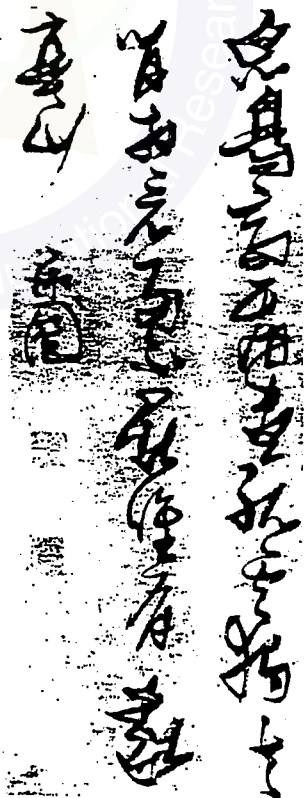 衆鳥高飛盡孤雲獨去
閒相看兩不厭唯有敬
亭山